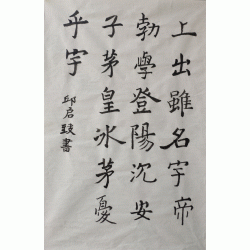 上出雖名字帝
勃學登陽沉安
子茅皇冰茅憂
乎字
邱启書